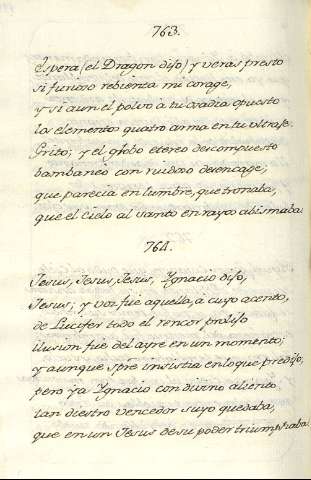 763.
Espera (el Dragon dijo) y veras presto
si furioso rebienta mi corage,
y si aun el polvo à tu osadia opuesto
los elementos quatro arma en tu ultraje.
Gritò; y el globo etereo descompuesto
bambaneo con ruidoso desencage;
que parecia en lumbre, que tronaba,
que el Cielo al santo en rayos abismaba.
764.
Jesus, Jesus, Jesus, Ygnacio dijo,
Jesus; y voz fue aquella, a cuyo acento,
de Lucifer todo el rencor prolijo
ilusion fue del ayre en un momento;
y aunque spre insistia en lo que predijo,
pero ya Ygnacio con divino aliento
tan diestro vencedor suyo quedaba,
que en un Jesus de su poder triumphaba.